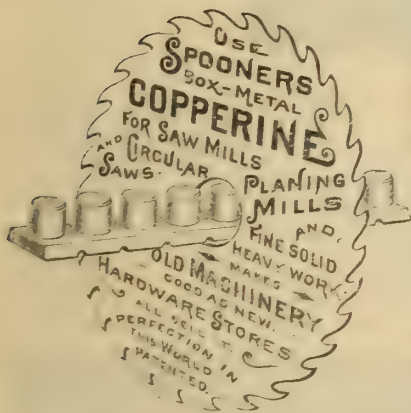 USE
SPOONERS
BOX-METAL
COPPERINE
FOR SAW MILLS
AND CIRCULAR
SAWS.
PLANING
MILLS
AND,
FINE SOLID
HEAVY WORK.
MAKES
OLD MACHINERY
GOOD AS NEW.
HARDWARE STORES
ALL SELL IT.
PERFECTION IN
THIS WORLD
PATENTED.